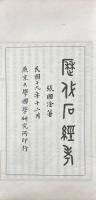 歷代石經考
張國淦著
民國十九年十二月
燕京大學國學研究所印行